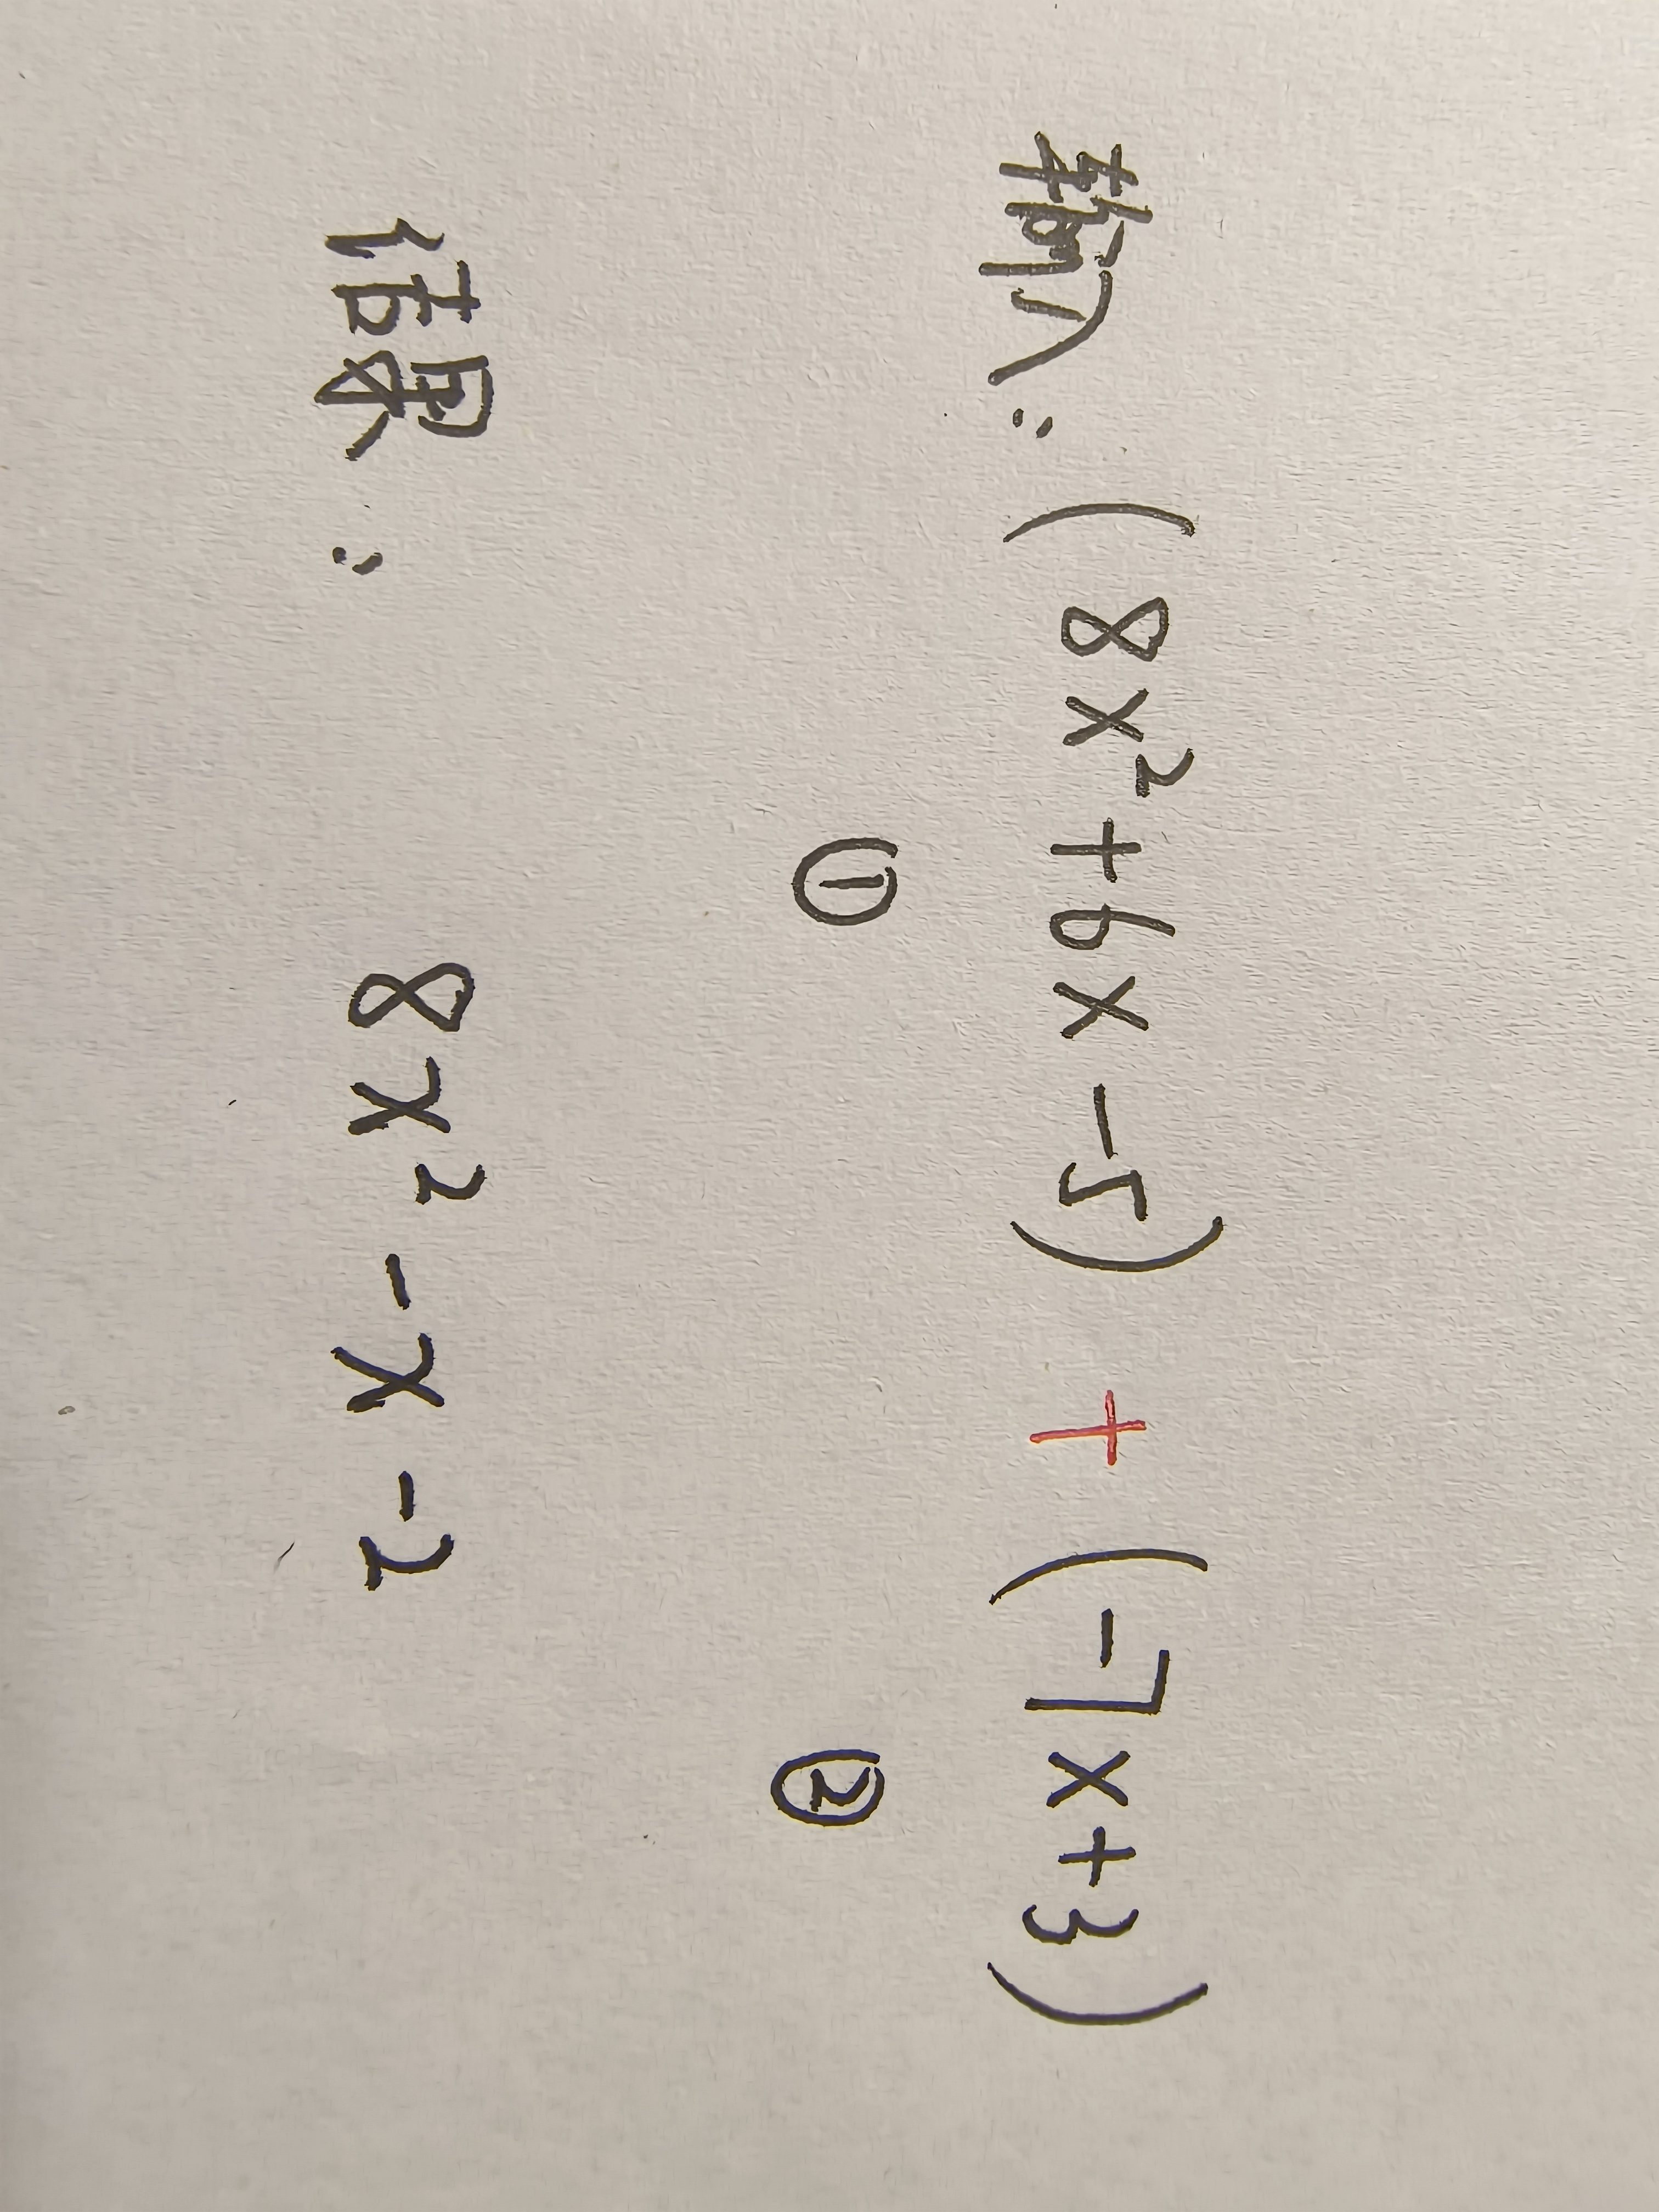 输入: (8x²+6x-5) + (-7x+3)
① ②
结果: 8x²-x-2